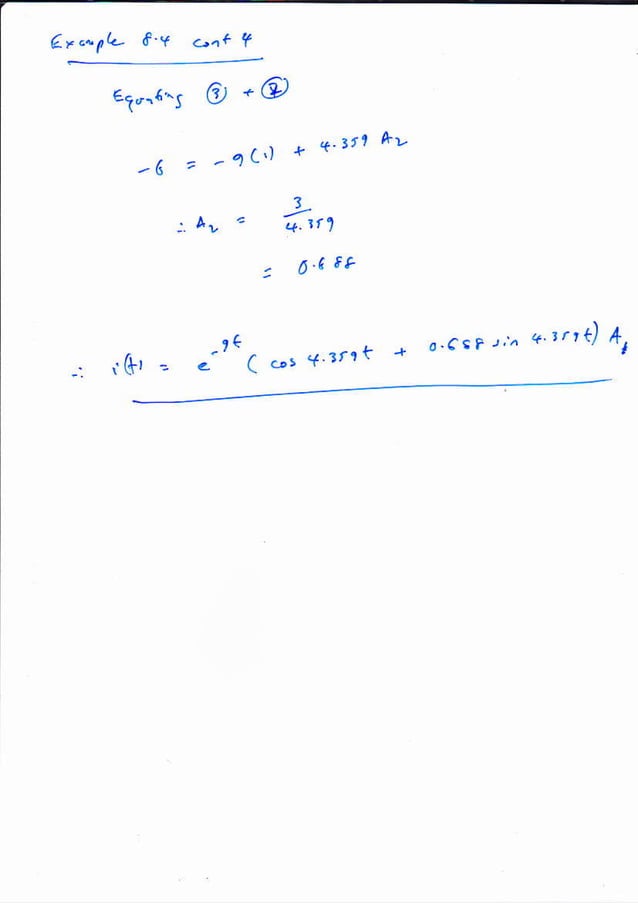 Example 8.4 cont 4
Equating ③ + ②
-6 = -9(1) + 4.359 A₂
∴ A₂ = 3/4.359
= 0.688
∴ i(t) = e^-9t ( cos 4.359t + 0.688 sin 4.359t) A,